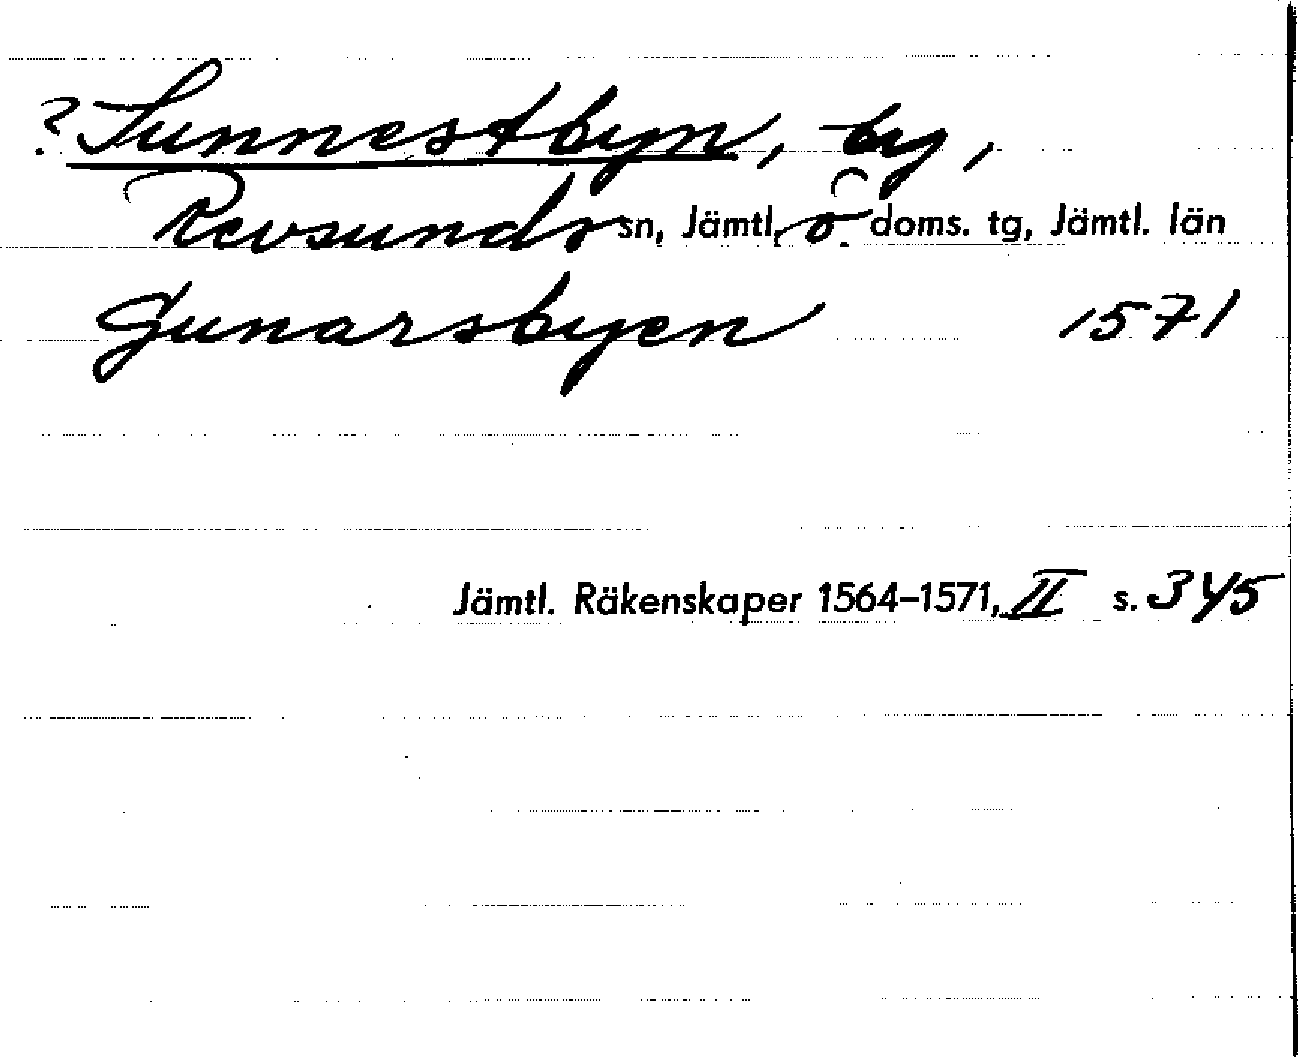 ? Sunnestbyn, by,
Revsunds sn, Jämtl. ö. doms. tg, Jämtl. län
Gunarsbyen 1571
Jämtl. Räkenskaper 1564–1571, II s. 345